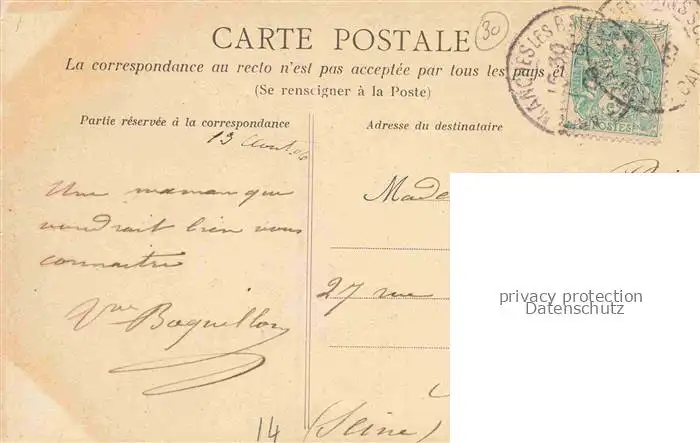 30
CARTE POSTALE
La correspondance au recto n'est pas acceptée par tous les pays et
(Se renseigner à la Poste)
Partie réservée à la correspondance
Adresse du destinataire
13 Aout 06
Une maman qui
voudrait bien vous
connaitre
Vve Boquillon
Made
27 rue
(Seine)
14
POSTES
privacy protection
Datenschutz